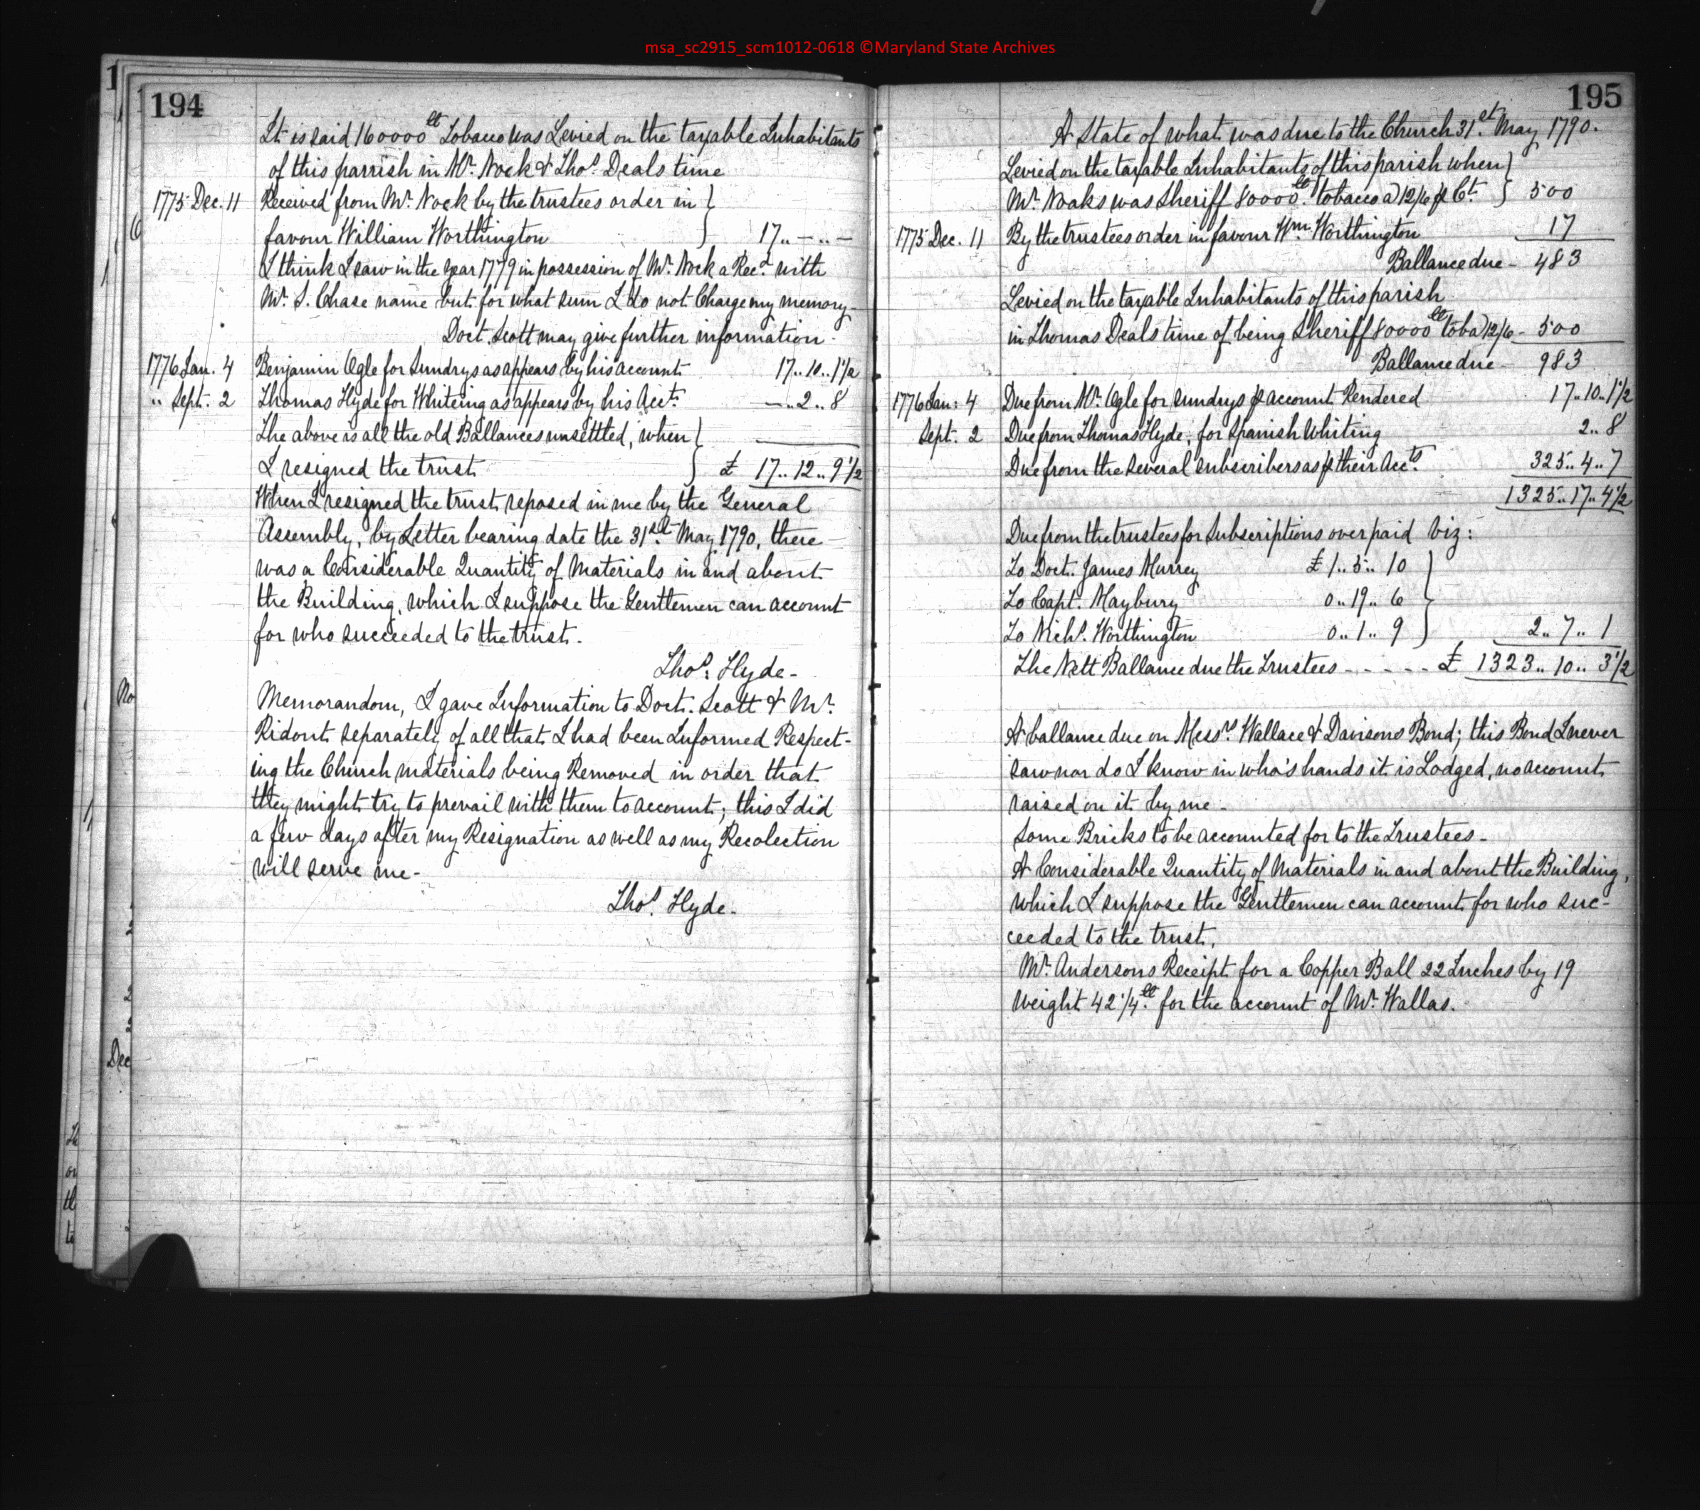 msa_sc2915_scm1012-0618 ©Maryland State Archives
194
It is said 160000 lb Tobacco was Levied on the taxable Inhabitants
of this parrish in Mr. Nock & Thos. Deals time
1775 Dec. 11 Received from Mr. Nock by the trustees order in }
favour William Worthington } 17..—..—
I think I saw in the year 1779 in possession of Mr. Nock a Recd. with
Mr. S. Chase name but for what sum I do not Charge my memory—
Doct. Scott may give further information.
1776 Jan. 4 Benjamin Ogle for Sundrys as appears by his account 17..10..1½
" Sept. 2 Thomas Hyde for Whiteing as appears by his Acct. —..2..8
The above is all the old Ballances unsettled, when }
I resigned the trust } £ 17..12..9½
When I resigned the trust reposed in me by the General
Assembly, by Letter bearing date the 31st. May 1790, there
was a Considerable Quantity of Materials in and about
the Building, which I suppose the Gentlemen can account
for who succeeded to the trust.
Thos. Hyde-
Memorandom, I gave Information to Doct. Scott & Mr.
Ridout separately of all that I had been Informed Respect-
ing the Church materials being Removed in order that
they might try to prevail with them to account; this I did
a few days after my Resignation as well as my Recolection
will serve me-
Thos. Hyde-
195
A State of what was due to the Church 31st. May 1790.
Levied on the taxable Inhabitants of this parish when }
Mr. Noaks was Sheriff 80000 lb. tobacco a) 12/6 p Ct. } 500
1775 Dec. 11 By the trustees order in favour Wm. Worthington 17
Ballance due - 483
Levied on the taxable Inhabitants of this parish
in Thomas Deals time of being Sheriff 80000 lb toba) 12/6- 500
Ballance due - 983
1776 Jan: 4 Due from Mr. Ogle for sundrys p account Rendered 17..10..1½
Sept. 2 Due from Thomas Hyde, for Spanish Whiting 2..8
Due from the several subscribers as p their Accts. 325..4..7
1325..17..4½
Due from the trustees for Subscriptions over paid Viz:
To Doct. James Murrey £ 1..5..10 }
To Capt. Maybury 0..19..6 }
To Nichs. Worthington 0..1..9 } 2..7..1
The Nett Ballance due the Trustees - - - - - £ 1323..10..3½
A ballance due on Messrs. Wallace & Davisons Bond; this Bond I never
saw nor do I know in who's hands it is Lodged, no account
raised on it by me.
Some Bricks to be accounted for to the Trustees-
A Considerable Quantity of Materials in and about the Building,
which I suppose the Gentlemen can account for who suc-
ceeded to the trust.
Mr. Andersons Receipt for a Copper Ball 22 Inches by 19
weight 42¼ lb. for the account of Mr. Wallas.